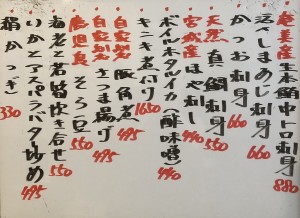 奄美産生本鮪中トロ刺身 880
活〆しまあじ刺身 660
かつお刺身 660
天然真鯛刺身 550
宮城産ほや刺し 440
ボイルホタルイカ(酢味噌) 440
キンキ煮付け 1650
自家製豚角煮 495
自家製さつま揚げ 495
鹿児島そら豆 550
海老と若筍炊き合せ 550
いかとアスパラバター炒め 495
絹かつぎ 330